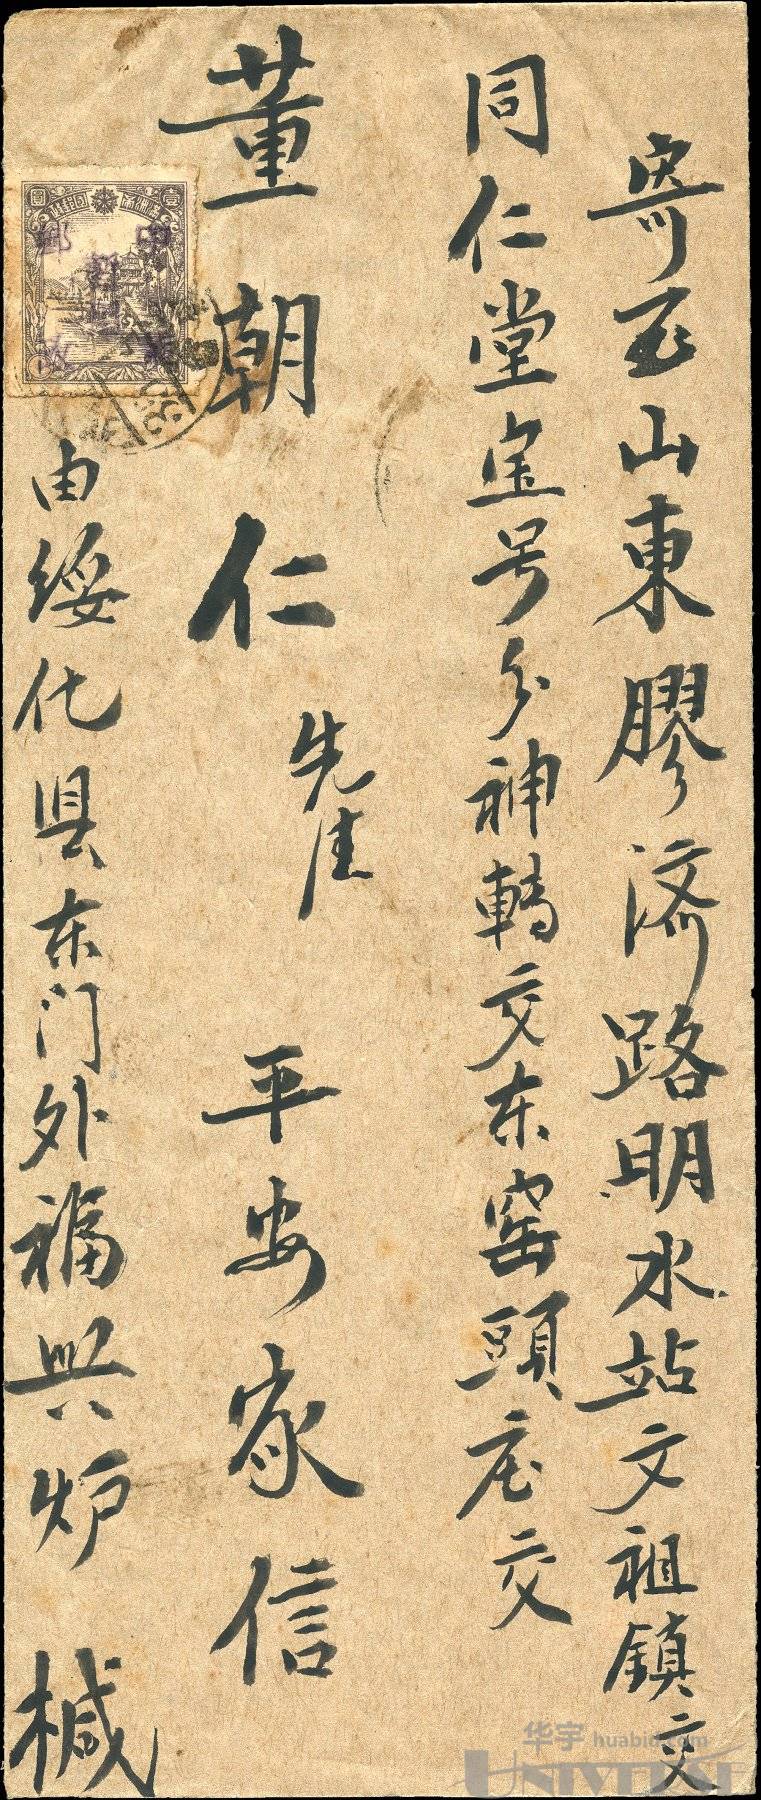 寄至山東膠济路明水站文祖鎮交
同仁堂宝号分神轉交东窑頭庄交
董朝仁先生 平安家信
由绥化县东门外福兴炉椷
壹圓
华宇 huabid.com
UNIVERSE